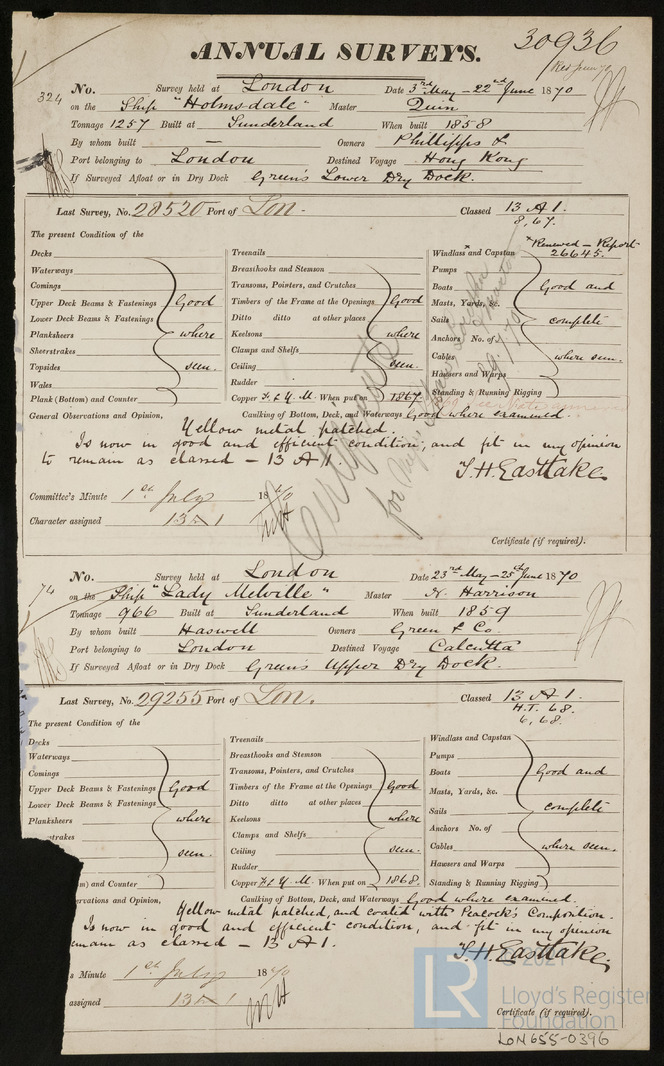 30936
ANNUAL SURVEYS.
Rec June 70
324
No. Survey held at London Date 3rd May - 22nd June 1870
on the Ship "Holmsdale" Master Quin
Tonnage 1257 Built at Sunderland When built 1858
By whom built — Owners Phillipps &
Port belonging to London Destined Voyage Hong Kong
If Surveyed Afloat or in Dry Dock Green's Lower Dry Dock.
Last Survey, No. 28520 Port of Lon. Classed 13 A 1.
8, 67.
The present Condition of the
x Renewed - Report
Decks Treenails Windlass x and Capstan 26645.
Waterways Breasthooks and Stemson Pumps
Comings Transoms, Pointers, and Crutches Boats Good and
Upper Deck Beams & Fastenings Good Timbers of the Frame at the Openings Good Masts, Yards, &c.
Lower Deck Beams & Fastenings Ditto ditto at other places Sails complete
Planksheers where Keelsons where Anchors No. of
Sheerstrakes Clamps and Shelfs Cables where seen.
Topsides seen. Ceiling seen. Hawsers and Warps
Wales Rudder Standing & Running Rigging
Plank (Bottom) and Counter Copper F. & Y. M. When put on 1867
General Observations and Opinion, Caulking of Bottom, Deck, and Waterways Good where examined.
Yellow metal patched.
Is now in good and efficient condition, and fit in my opinion
to remain as classed - 13 A 1.
T. H. Eastlake
Committee's Minute 1st July 1870
Character assigned 13 A 1
Certificate (if required).
74
No. Survey held at London Date 23rd May - 25th June 1870
on the Ship "Lady Melville" Master H. Harrison
Tonnage 966 Built at Sunderland When built 1859
By whom built Haswell Owners Green & Co.
Port belonging to London Destined Voyage Calcutta
If Surveyed Afloat or in Dry Dock Green's Upper Dry Dock.
Last Survey, No. 29255 Port of Lon. Classed 13 A 1.
H.T. 68.
6, 68.
The present Condition of the
Decks Treenails Windlass and Capstan
Waterways Breasthooks and Stemson Pumps
Comings Transoms, Pointers, and Crutches Boats Good and
Upper Deck Beams & Fastenings Good Timbers of the Frame at the Openings Good Masts, Yards, &c.
Lower Deck Beams & Fastenings Ditto ditto at other places Sails complete
Planksheers where Keelsons where Anchors No. of
trakes Clamps and Shelfs Cables where seen.
seen. Ceiling seen. Hawsers and Warps
Rudder
m) and Counter Copper F. & Y. M. When put on 1868. Standing & Running Rigging
rvations and Opinion, Caulking of Bottom, Deck, and Waterways Good where examined.
Yellow metal patched, and coated with Peacock's Composition.
Is now in good and efficient condition, and fit in my opinion
emain as classed - 13 A 1.
T. H. Eastlake.
s Minute 1st July 1870
assigned 13 A 1
LR © 2021
Lloyd's Register
Foundation
Certificate (if required).
LON655-0396